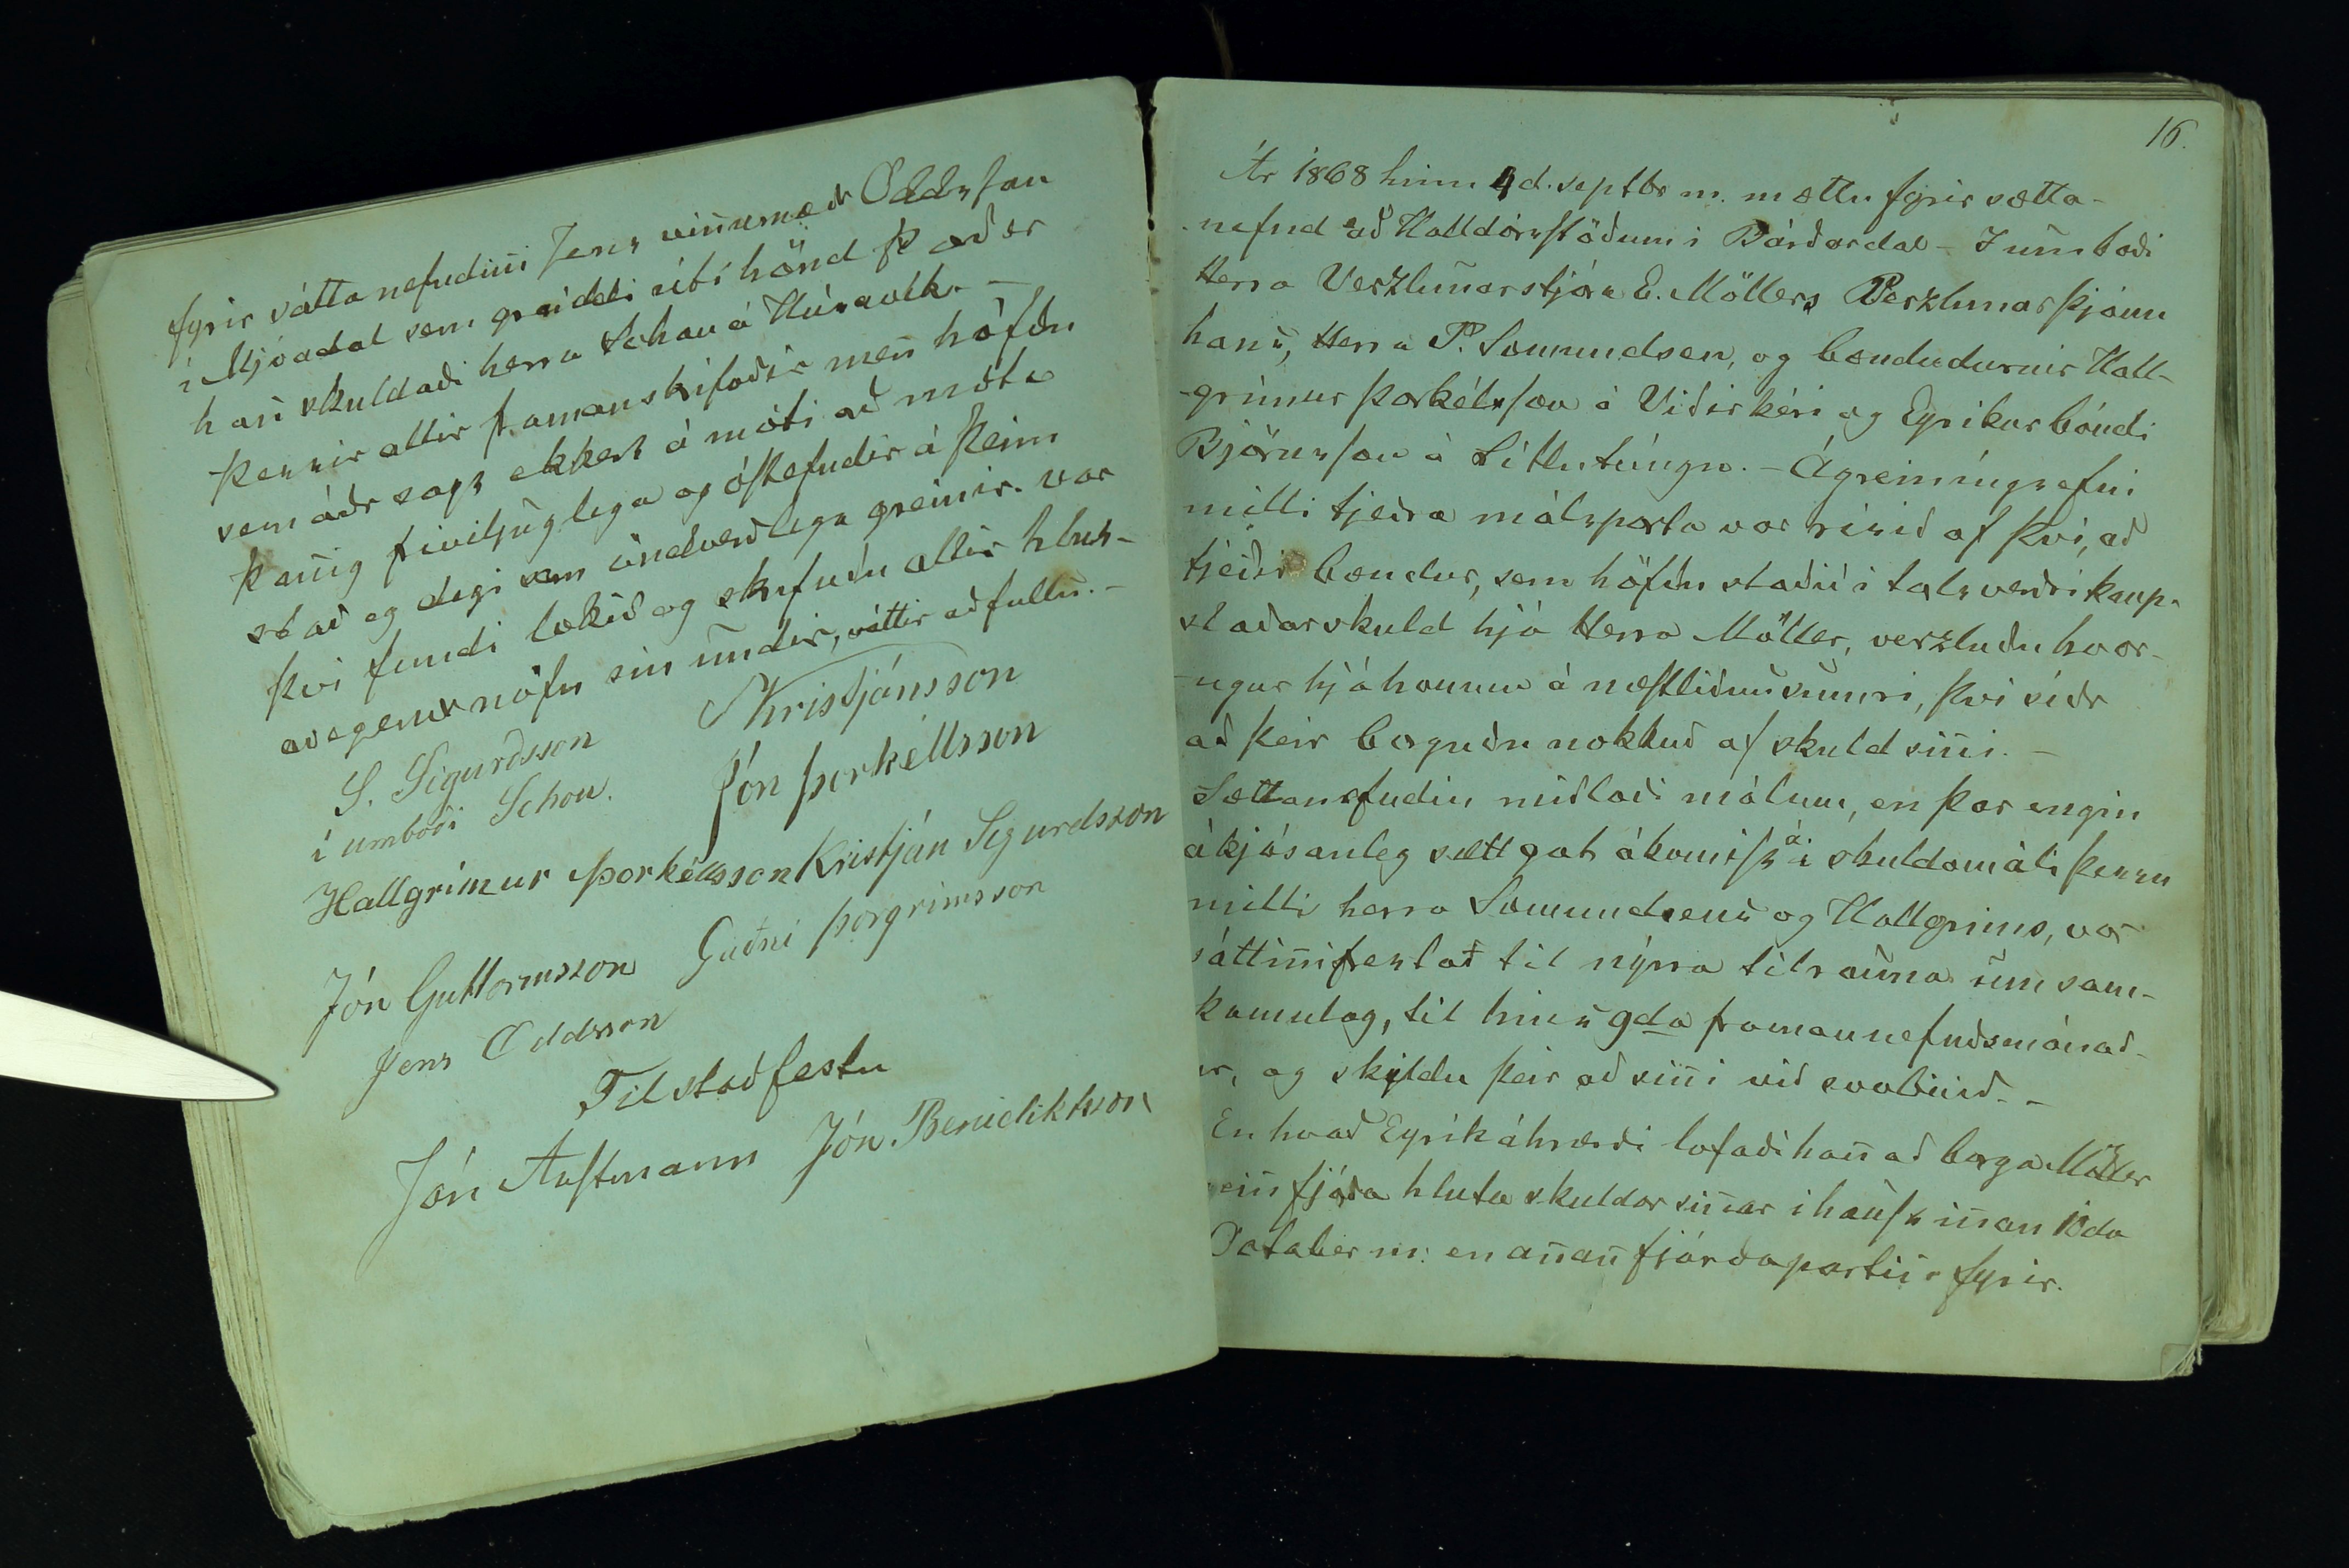 fyrir sátta nefndiñi Jens viñumaðr Oddsson
í Mjóadal sem greiddi útí hönd það er
hañ skuldaði herra Schou á Húsavík. –
Þessir allir framanskrifaðir meñ höfðu
sem áðr sagt ekkert á móti að mæta
þañig friviljuglega og óstefndir á þeim
stað og degi sem öndverðlega greinir. var
því fundi lokið og skrifuðu allir hlut-
aðegendr nöfn sin undir, sáttir að fullu. –
S. Sigurðsson
í umboði Schou.
SKristjánsson
Jón Þorkéllsson
Hallgrímur Þorkéllsson Kristján Sigurdsson
Jón Guttormsson Guðni Þorgrímsson
Jens Oddsson
Til staðfestu
Jón Austmann Jón Benidiktsson
16.
Ár 1868 hinn 4 d. septbr m. mættu fyrir sætta-
-nefnd að Halldórsstöðum i Bárðardal – I umboði
Herra Verzlunarstjóra E. Möllers Verzlunarþjónn
hans, Herra P. Sæmundsen, og bændudurnir Hall-
-grímur Þorkélsson á Viðirkéri og Eyríkur bóndi
Björnsson á Litlutúngu. – Ágreiníngsefni
milli tjeðra málsparta var risið af því, að
tjéðir bændur, sem höfðu staðið i talsverðri kaup-
staðarskuld hjá Herra Möller, verzluðu hvor-
-ugur hjá honum á næstliðnu sumri, því síðr
að þeir borguðu nokkuð af skuld siñi. –
Sættanefndin miðlaði málum, en þar engin
ákjósanleg sætt gat ákomist á i skuldamáli þessu
milli herra Sæmundsens og Hallgríms, var
sáttiñi frestað til nýrra tilrauna um sam-
komulag, til hins 9da framannefnds mánað-
ar, og skyldu þeir að siñi við svo búið. –
En hvað Eyrík áhrærði lofaði hañ að borga Möller
eiñ fjórða hluta skuldar siñar i haust iñan 10da
October m: en añañ fjórðapartiñ fyrir.